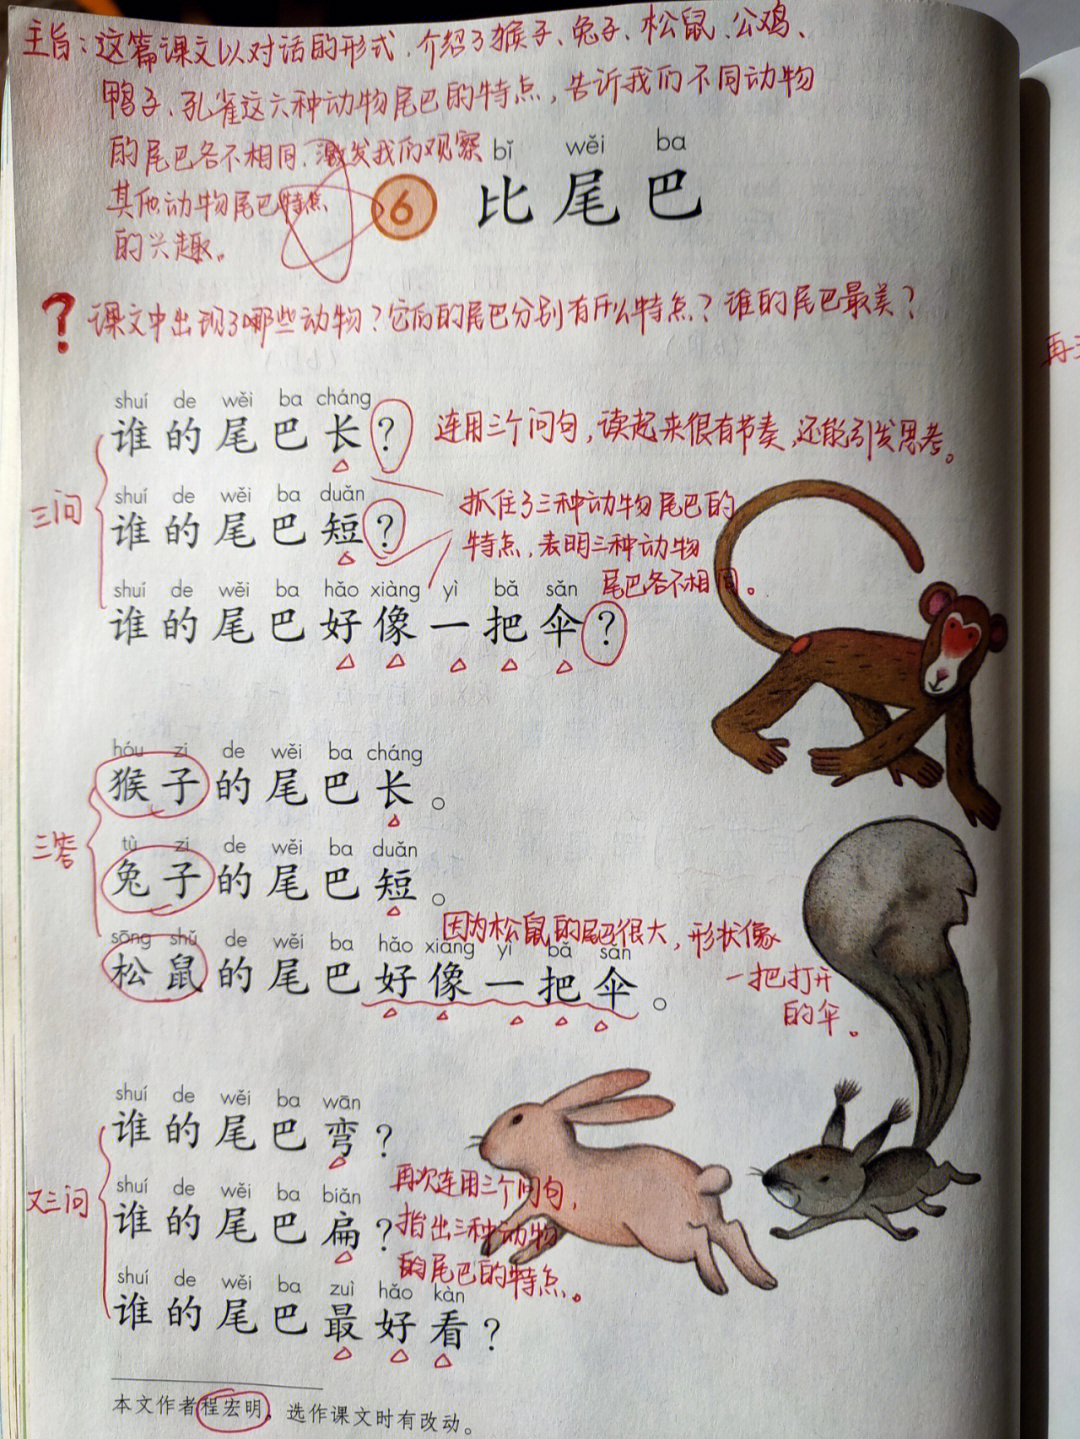 主旨：这篇课文以对话的形式，介绍了猴子、兔子、松鼠、公鸡、
鸭子、孔雀这六种动物尾巴的特点，告诉我们不同动物
的尾巴各不相同，激发我们观察
其他动物尾巴特点
的兴趣。
bǐ wěi ba
6 比尾巴
? 课文中出现了哪些动物？它们的尾巴分别有什么特点？谁的尾巴最美？
再
shuí de wěi ba cháng
谁的尾巴长？
连用三个问句，读起来很有节奏，还能引发思考。
三问
shuí de wěi ba duǎn
谁的尾巴短？
抓住了三种动物尾巴的
特点，表明三种动物
尾巴各不相同。
shuí de wěi ba hǎo xiàng yì bǎ sǎn
谁的尾巴好像一把伞？
hóu zi de wěi ba cháng
猴子的尾巴长。
三答
tù zi de wěi ba duǎn
兔子的尾巴短。
因为松鼠的尾巴很大，形状像
一把打开
的伞。
sōng shǔ de wěi ba hǎo xiàng yì bǎ sǎn
松鼠的尾巴好像一把伞。
shuí de wěi ba wān
谁的尾巴弯？
又三问
再次连用三个问句，
指出三种动物
的尾巴的特点。
shuí de wěi ba biǎn
谁的尾巴扁？
shuí de wěi ba zuì hǎo kàn
谁的尾巴最好看？
本文作者程宏明，选作课文时有改动。